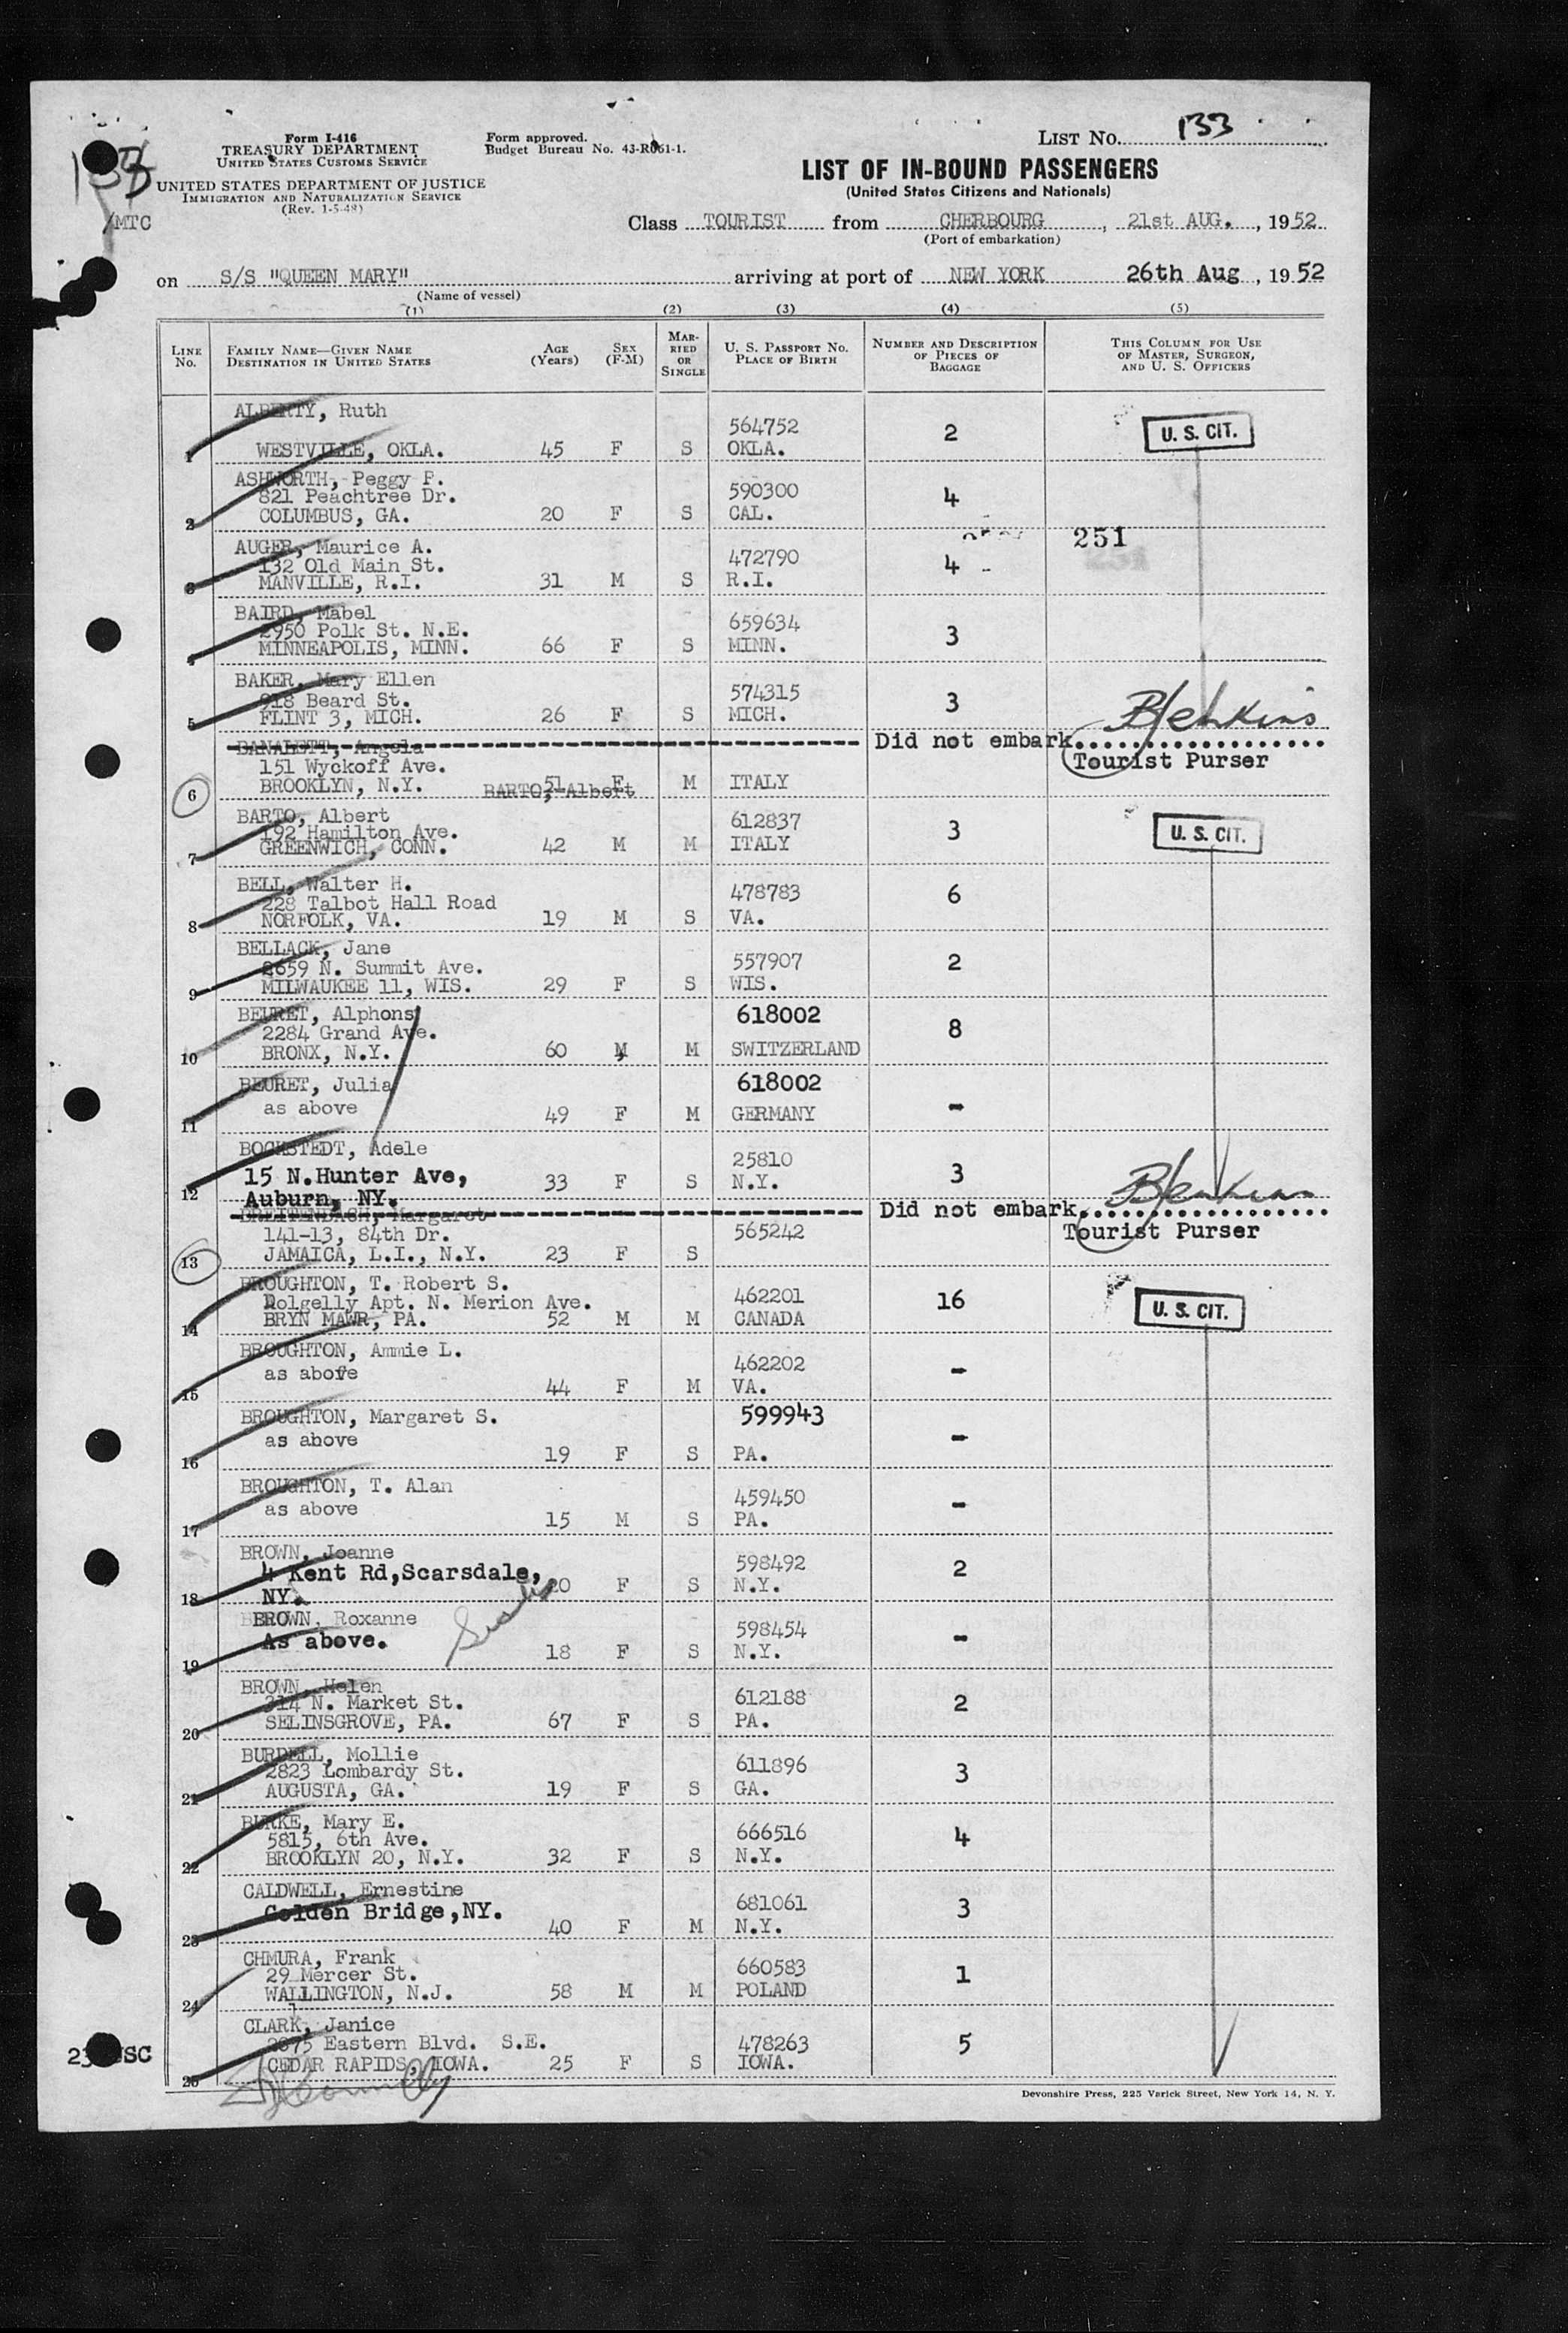 Form I-416
TREASURY DEPARTMENT
UNITED STATES CUSTOMS SERVICE
UNITED STATES DEPARTMENT OF JUSTICE
IMMIGRATION AND NATURALIZATION SERVICE
(Rev. 1-5-48)
/MTC
Form approved.
Budget Bureau No. 43-R061-1.
LIST No. 133
LIST OF IN-BOUND PASSENGERS
(United States Citizens and Nationals)
Class TOURIST from CHERBOURG, 21st AUG., 1952
(Port of embarkation)
on S/S "QUEEN MARY" arriving at port of NEW YORK 26th Aug, 1952
(Name of vessel)
(1) (2) (3) (4) (5)
LINE No. FAMILY NAME—GIVEN NAME DESTINATION IN UNITED STATES AGE (Years) SEX (F-M) MARRIED OR SINGLE U. S. PASSPORT No. PLACE OF BIRTH NUMBER AND DESCRIPTION OF PIECES OF BAGGAGE THIS COLUMN FOR USE OF MASTER, SURGEON, AND U. S. OFFICERS
ALBERTY, Ruth 564752 2 U. S. CIT.
1 WESTVILLE, OKLA. 45 F S OKLA.
ASHWORTH, Peggy P.
821 Peachtree Dr. 590300 4
2 COLUMBUS, GA. 20 F S CAL.
251
AUGER, Maurice A.
132 Old Main St. 472790 4
3 MANVILLE, R.I. 31 M S R.I.
BAIRD, Mabel
2950 Polk St. N.E. 659634 3
4 MINNEAPOLIS, MINN. 66 F S MINN.
BAKER, Mary Ellen
918 Beard St. 574315 3
5 FLINT 3, MICH. 26 F S MICH.
BJenkins
Angela Did not embark
151 Wyckoff Ave. Tourist Purser
6 BROOKLYN, N.Y. 51 F M ITALY
BARTO, Albert
BARTO, Albert 612837 3 U. S. CIT.
192 Hamilton Ave.
7 GREENWICH, CONN. 42 M M ITALY
BELL, Walter H.
228 Talbot Hall Road 478783 6
8 NORFOLK, VA. 19 M S VA.
BELLACK, Jane
2659 N. Summit Ave. 557907 2
9 MILWAUKEE 11, WIS. 29 F S WIS.
BEURET, Alphons 618002
2284 Grand Ave. 8
10 BRONX, N.Y. 60 M M SWITZERLAND
BEURET, Julia 618002
as above -
11 49 F M GERMANY
BOCKSTEDT, Adele 25810
15 N.Hunter Ave, 3
12 Auburn, NY. 33 F S N.Y.
BJenkins
BREITENBACH, Margaret Did not embark
141-13, 84th Dr. 565242 Tourist Purser
13 JAMAICA, L.I., N.Y. 23 F S
BROUGHTON, T. Robert S.
Dolgelly Apt. N. Merion Ave. 462201 16 U. S. CIT.
14 BRYN MAWR, PA. 52 M M CANADA
BROUGHTON, Ammie L.
as above 462202 -
15 44 F M VA.
BROUGHTON, Margaret S. 599943
as above -
16 19 F S PA.
BROUGHTON, T. Alan
as above 459450 -
17 15 M S PA.
BROWN, Joanne
4 Kent Rd,Scarsdale, 598492 2
18 NY. 20 F S N.Y.
BROWN, Roxanne
As above. 598454 -
19 18 F S N.Y.
BROWN, Helen
314 N. Market St. 612188 2
20 SELINSGROVE, PA. 67 F S PA.
BURDELL, Mollie
2823 Lombardy St. 611896 3
21 AUGUSTA, GA. 19 F S GA.
BURKE, Mary E.
5815, 6th Ave. 666516 4
22 BROOKLYN 20, N.Y. 32 F S N.Y.
CALDWELL, Ernestine
Golden Bridge,NY. 681061 3
23 40 F M N.Y.
CHMURA, Frank
29 Mercer St. 660583 1
24 WALLINGTON, N.J. 58 M M POLAND
CLARK, Janice
2875 Eastern Blvd. S.E. 478263 5
25 CEDAR RAPIDS, IOWA. 25 F S IOWA.
Devonshire Press, 225 Varick Street, New York 14, N. Y.